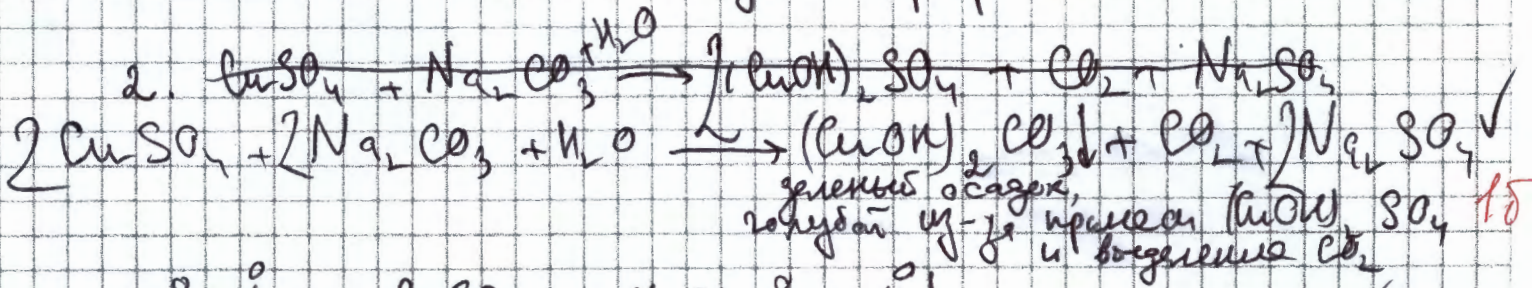 2. CuSO₄ + Na₂CO₃ +H₂O → 2(CuOH)₂SO₄ + CO₂ + Na₂SO₄
2CuSO₄ + 2Na₂CO₃ + H₂O → (CuOH)₂CO₃↓ + CO₂ + 2Na₂SO₄ ✓
зеленый осадок,
голубой из-за примеси (CuOH)₂SO₄ 1б
и выделение CO₂